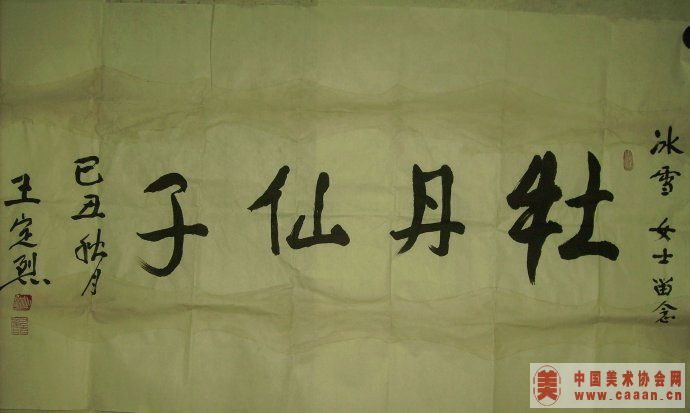 冰雪女士留念
牡丹仙子
己丑秋月
王定烈
美
中国美术协会网
www.caaan.cn